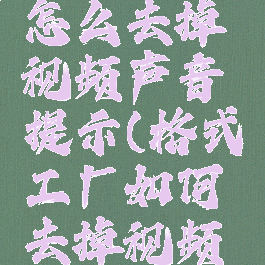 怎么去掉
视频声音
提示(格式
工厂如何
去掉视频